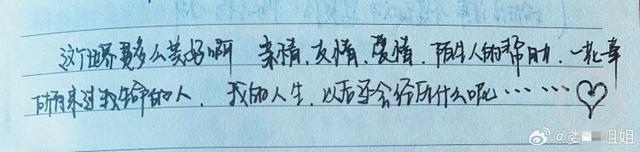 这个世界多么美好啊 亲情、友情、爱情、陌生人的帮助、一花一草
所有来过我生命的人、我的人生,以后还会经历什么呢……♡
@娄 姐姐